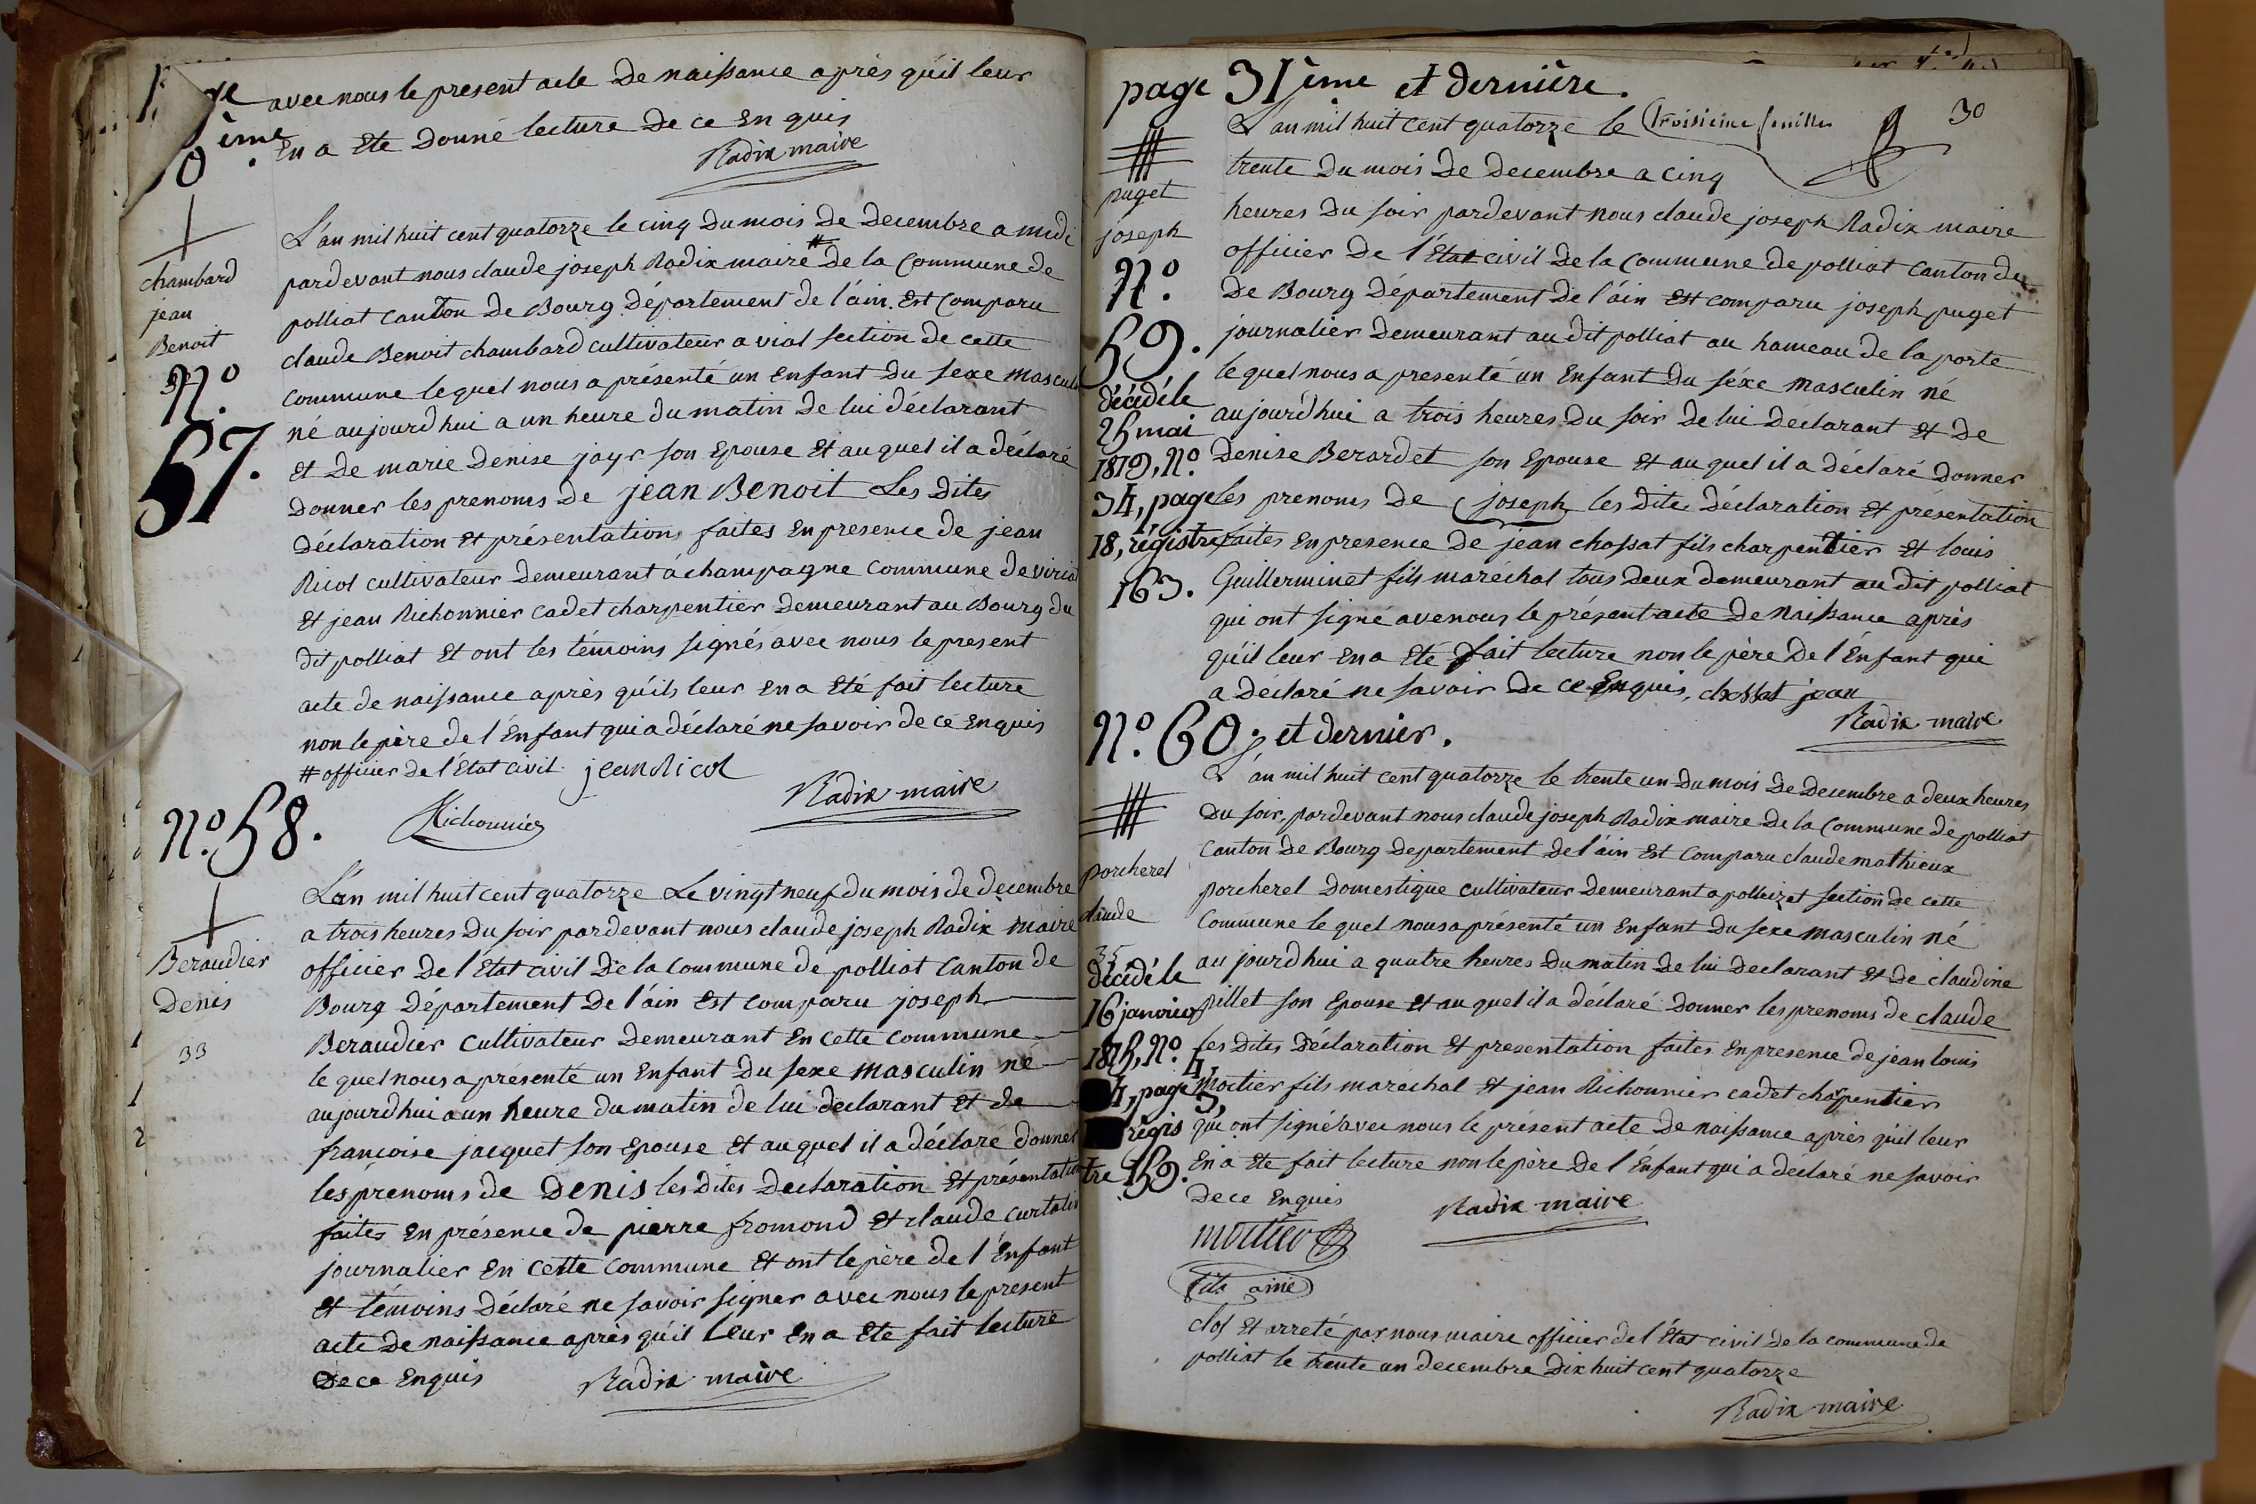 avec nous le present acte De naissance après qu'il leur
ème
En a Eté Donné lecture De ce Enquis
Radix maire
L'an mil huit cent quatorze le cinq Du mois De Decembre a midi
pardevant nous claude joseph Radix maire # De la Commune de
chambard
jean
Benoit
polliat canton De Bourg Département de l'ain. Est Comparu
claude Benoit chambard cultivateur a vial section de cette
commune lequel nous a présenté un Enfant Du sexe mascul
N.º
57.
né aujourd'hui a un heure du matin De lui déclarant
et De marie Denise jayr son Epouse Et au quel il a déclaré
Donner les prenoms De jean Benoit Les Dites
Déclaration Et présentation faites En presence de jean
Ricol cultivateur Demeurant à champagne commune De viriat
Et jean Richonnier cadet charpentier Demeurant au Bourg du
Dit polliat Et ont les témoins signés avec nous le present
acte de naissance après qu'ils leur En a Eté fait lecture
non le père de l'Enfant qui a déclaré ne savoir de ce Enquis
# officier de l'Etat civil. jean Ricol
Richonnier
Radix maire
N.º 58.
L'an mil huit cent quatorze Le vingt neuf du mois de decembre
a trois heures Du soir pardevant nous claude joseph Radix maire
Beraudier
Denis
33
officier De l'Etat civil De la Commune de polliat Canton de
Bourg Département De l'ain Est comparu joseph
Beraudier cultivateur Demeurant En cette commune
le quel nous a présenté un Enfant Du sexe masculin né
aujourd'hui a un heure du matin de lui declarant Et de
francoise jacquet son Epouse Et au quel il a déclaré donner
les prenoms de Denis les Dites Declaration Et présentation
faites En présence de pierre fromond Et claude curtalin
journalier En cette commune Et ont le père de l'Enfant
Et témoins Déclaré ne savoir signer avec nous le present
acte De naissance après qu'il leur En a Eté fait lecture
De ce Enquis
Radix maire
page 31ème et dernière.
L'an mil huit cent quatorze le
troisieme feuille
30
trente Du mois De Decembre a cinq
puget
joseph
heures Du soir pardevant nous claude joseph Radix maire
officier De l'Etat civil De la Commune de polliat Canton de
N.º
59.
De Bourg Département De l'ain Est comparu joseph puget
journalier Demeurant au dit polliat au hameau de la porte
le quel nous a presenté un Enfant Du séxe masculin né
décédé le
25 mai
1819, N.º
34, page
18, registre
163.
aujourd'hui a trois heures Du soir De lui Déclarant Et De
Denise Berardet son Epouse Et au quel il a déclaré Donner
les prenoms De joseph les Dite Déclaration Et présentation
faites En presence De jean chossat fils charpentier Et louis
Guillerminet fils maréchal tous Deux demeurant au dit polliat
qui ont signé avenous le présent acte De naissance après
qu'il leur En a Eté fait lecture non le père De l'Enfant qui
a Déclaré ne savoir De ce Enquis. chossat jean
Radix maire
N.º 60; et dernier.
L'an mil huit cent quatorze le trente un Du mois De Decembre a deux heures
Du soir, pardevant nous claude joseph Radix maire De la Commune de polliat
Canton De Bourg Departement De l'ain Est Comparu claude mathieux
porcherel
claude
35
porcherel Domestique cultivateur Demeurant a section de cette
commune le quel nous a présenté un Enfant Du sexe masculin né
décédé le
16 janvier
1815, N.º
4, page
3,
régis
tre 159.
au jourd'hui a quatre heures Du matin De lui Declarant Et De claudine
pillet son Epouse Et au quel il a déclaré Donner les prenoms de claude
les Dites Déclaration Et presentation faites En presence de jean louis
moitier fils maréchal Et jean Richonnier cadet charpentier
qui ont signé avec nous le présent acte De naissance après qu'il leur
En a Eté fait lecture non le père De l'Enfant qui a déclaré ne savoir
De ce Enquis
Radix maire
moitier
fils ainé
clos Et arreté par nous maire officier de l'État civil De la commune de
polliat le trente un decembre Dix huit cent quatorze
Radix maire